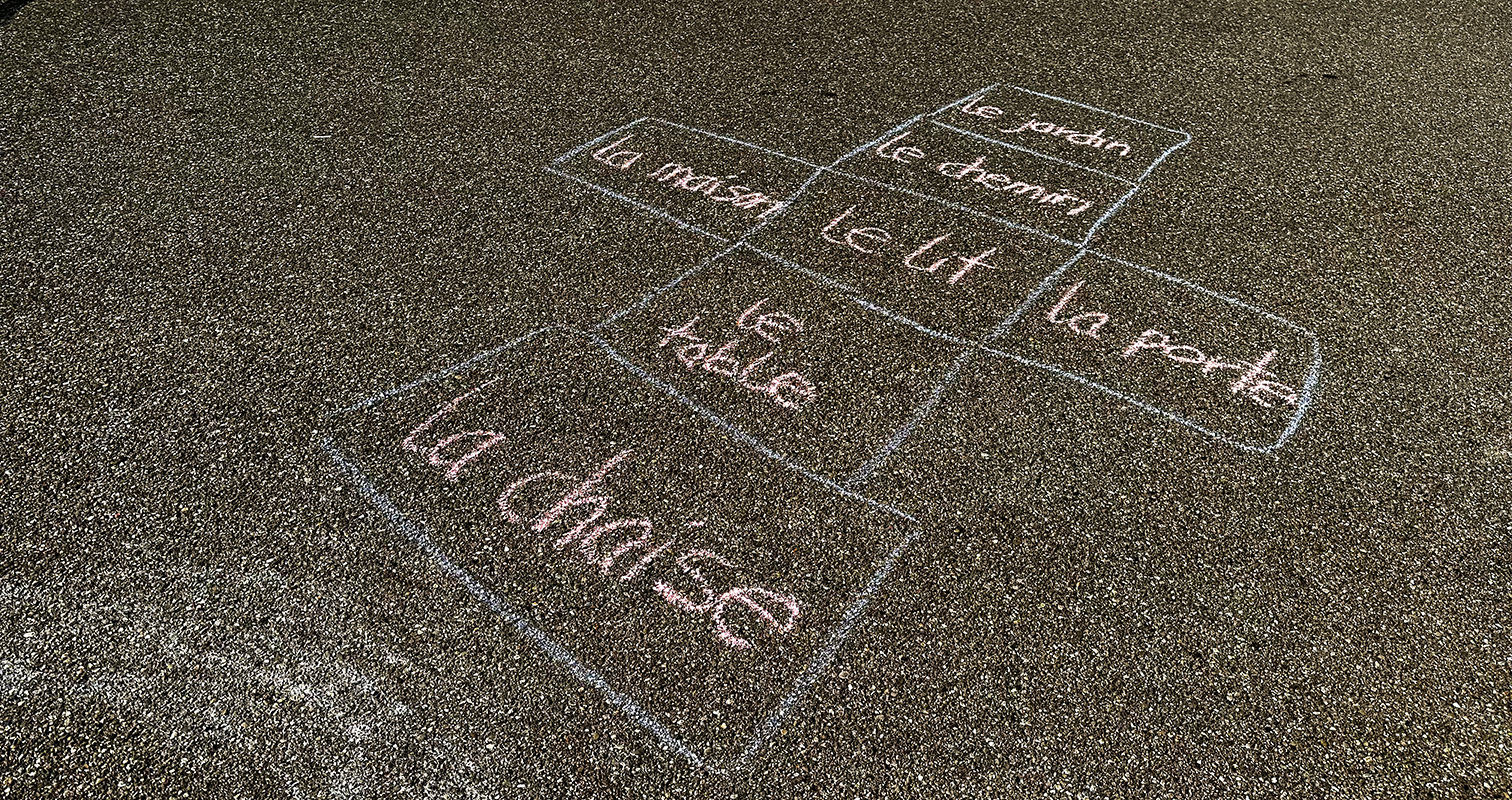 le jardin
le chemin
la maison
le lit
la porte
le
table
la chaise